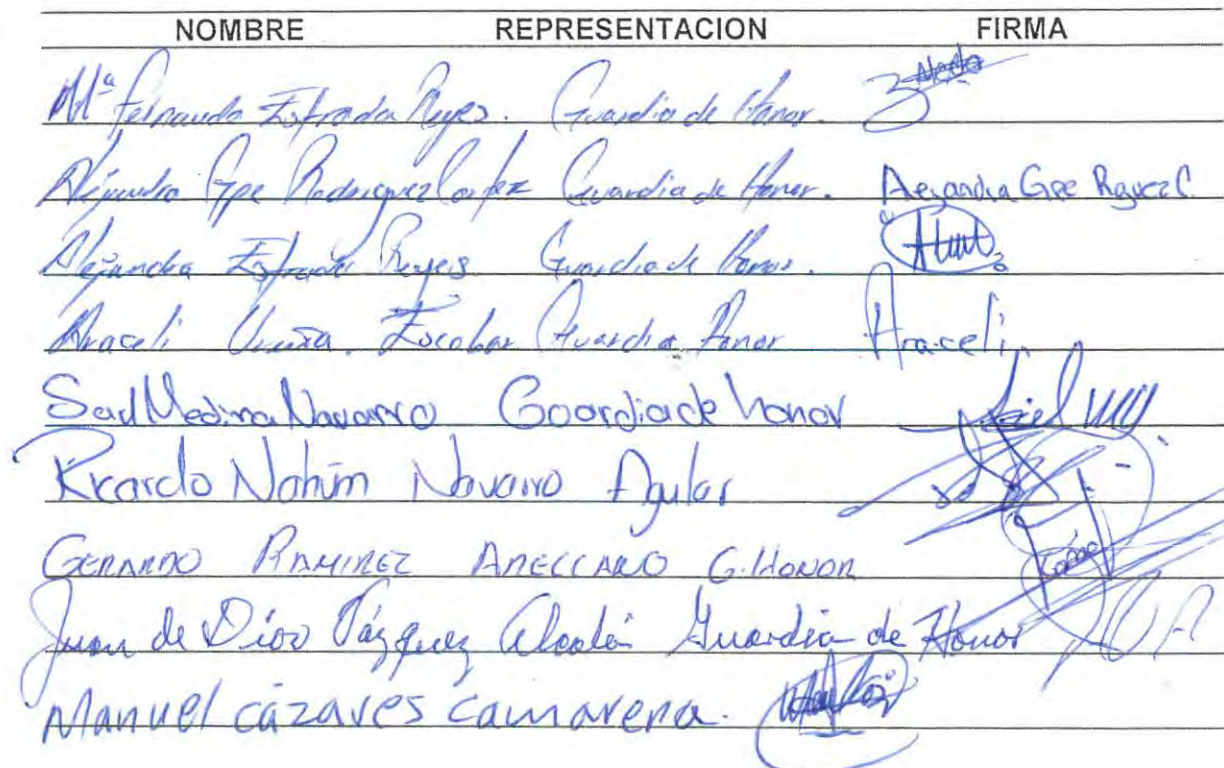 NOMBRE REPRESENTACION FIRMA
Mª Fernanda Estrada Reyes. Guardia de Honor.
Alejandra Gpe Rodriguez Cortez Guardia de Honor. Alejandra Gpe Rguez C
Alejandra Estrada Reyes. Guardia de Honor.
Araceli Escobar Guardia Honor Araceli.
Saul Medina Navarro Goardia de honor
Ricardo Nahúm Navarro Aguilar
GERARDO RAMIREZ ARELLANO G. HONOR
Juan de Dios Vázquez Guardia de Honor
Manuel cázares camarena.